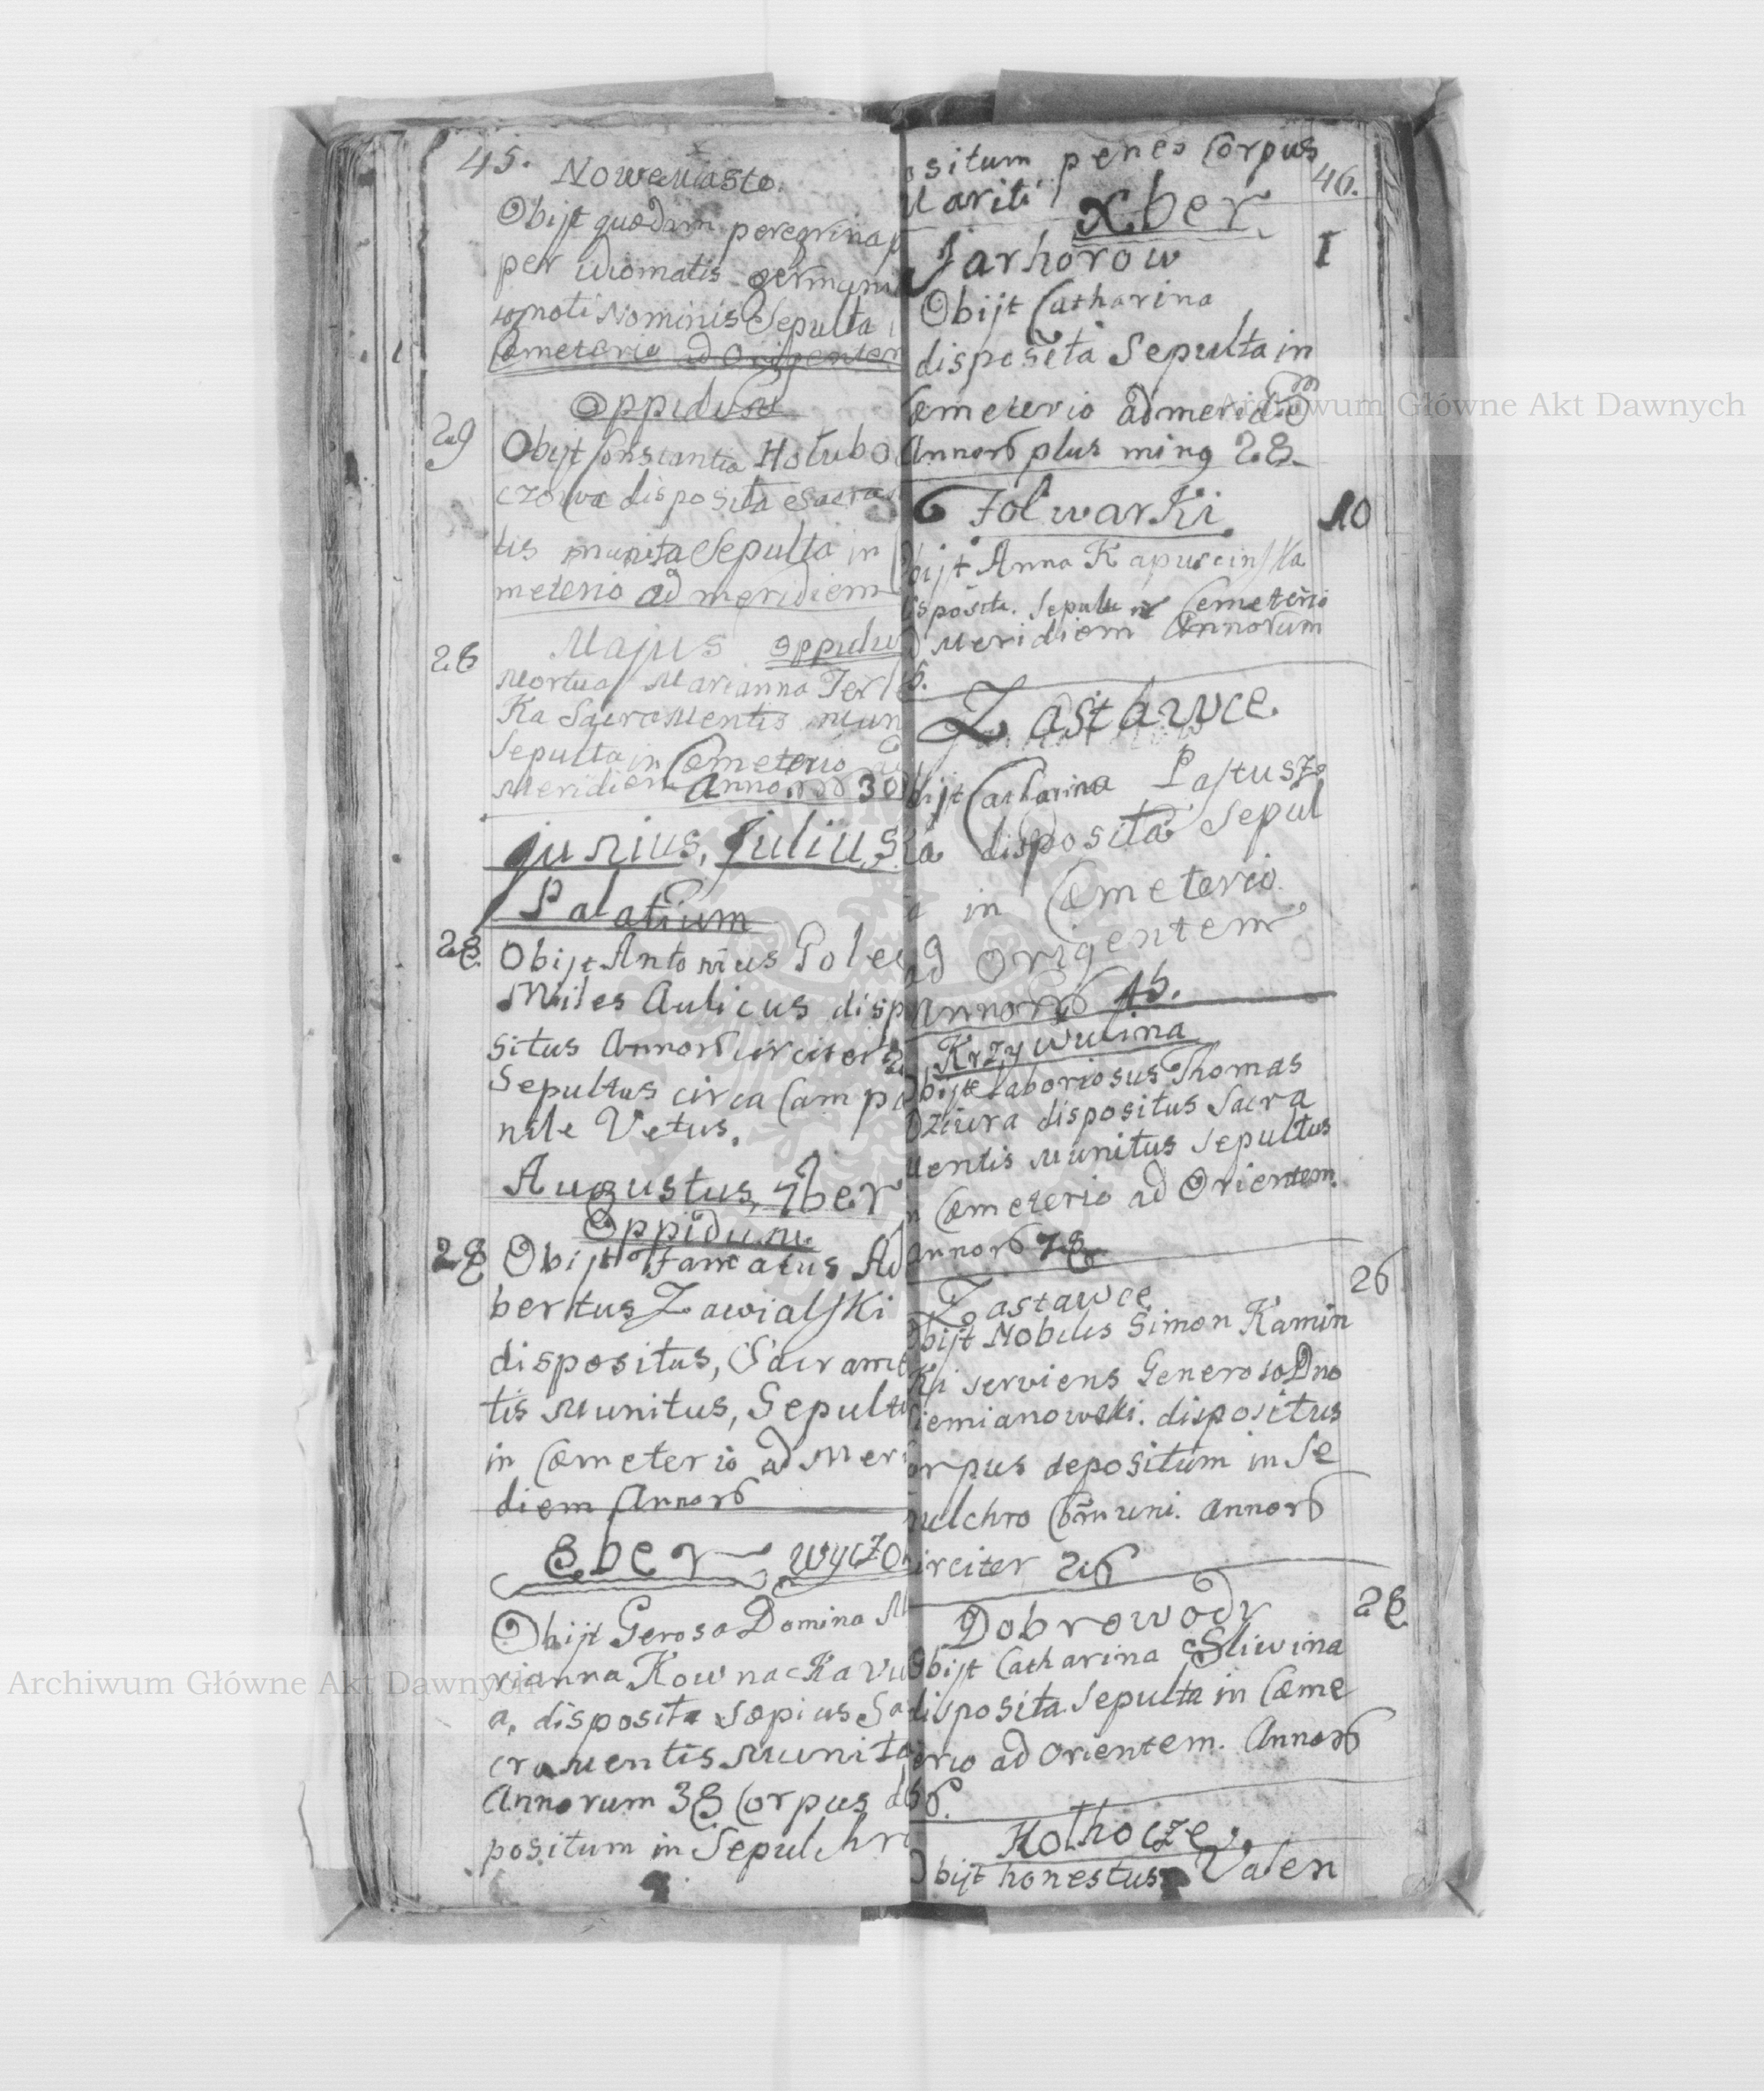 45.
Nowemiasto.
Obijt quædam peregrina
per idiomatis germani
Nominis Sepulta
Cæmeterio ad Origentem
Oppidum
29
Obijt Constantia Hołubo
czowa disposita Sacra
tis munita Sepulta in
meterio ad meridiem
Majus Oppidu
26
Mortua Marianna Terle
Ka Sacramentis mun
Sepulta in Cæmeterio
Meridiem Annorum 30
Junius, Julius
Palatium
28
Obijt Antonius Gole
Miles Aulicus disp
situs Annor circiter
Sepultus circa Campa
nile Vetus.
Augustus, 7ber
Oppidum
28
Obijt Famatus Ad
bertus Zawialski
dispositus, Sacrame
tis Munitus, Sepultu
in Cæmeterio ad Meri
diem Annor
8ber wyczo
Obijt Gerosa Domina M
rianna Kownacka vu
a, disposita sæpius Sa
cramentis munita
Annorum 38 Corpus de
positum in Sepulchro
ositum penes Corpus
Mariti
46.
xber
Jarhorow
1
Obijt Catharina
disposita Sepulta in
Cæmeterio ad meridiem
Annor plus minq 28
Folwarki
10
bijt Anna Kapuscinska
isposita. Sepulta in Cemeterio
Meridiem Annorum
Zastawce
bijt Catharina Pastusz
ka disposita Sepul
in Cæmeterio
ad Origentem
Annor 45.
Krzywulina
bijt laboriosus Thomas
Dziura dispositus Sacra
mentis Munitus Sepultus
n Cæmeterio ad Orientem.
Annor 78
Zastawce
26
bijt Nobilis Simon Kamin
ski serviens Generoso Dno
Siemianowski. dispositus
orpus depositum in Se
pulchro Comuni. Annor
circiter 26
Dobrowody
28
Obijt Catharina Sliwina
disposita Sepulta in Cæme
erio ad Orientem. Annor
56.
Hołhocze
Obijt honestus Valen
Archiwum Główne Akt Dawnych
Archiwum Główne Akt Dawnych